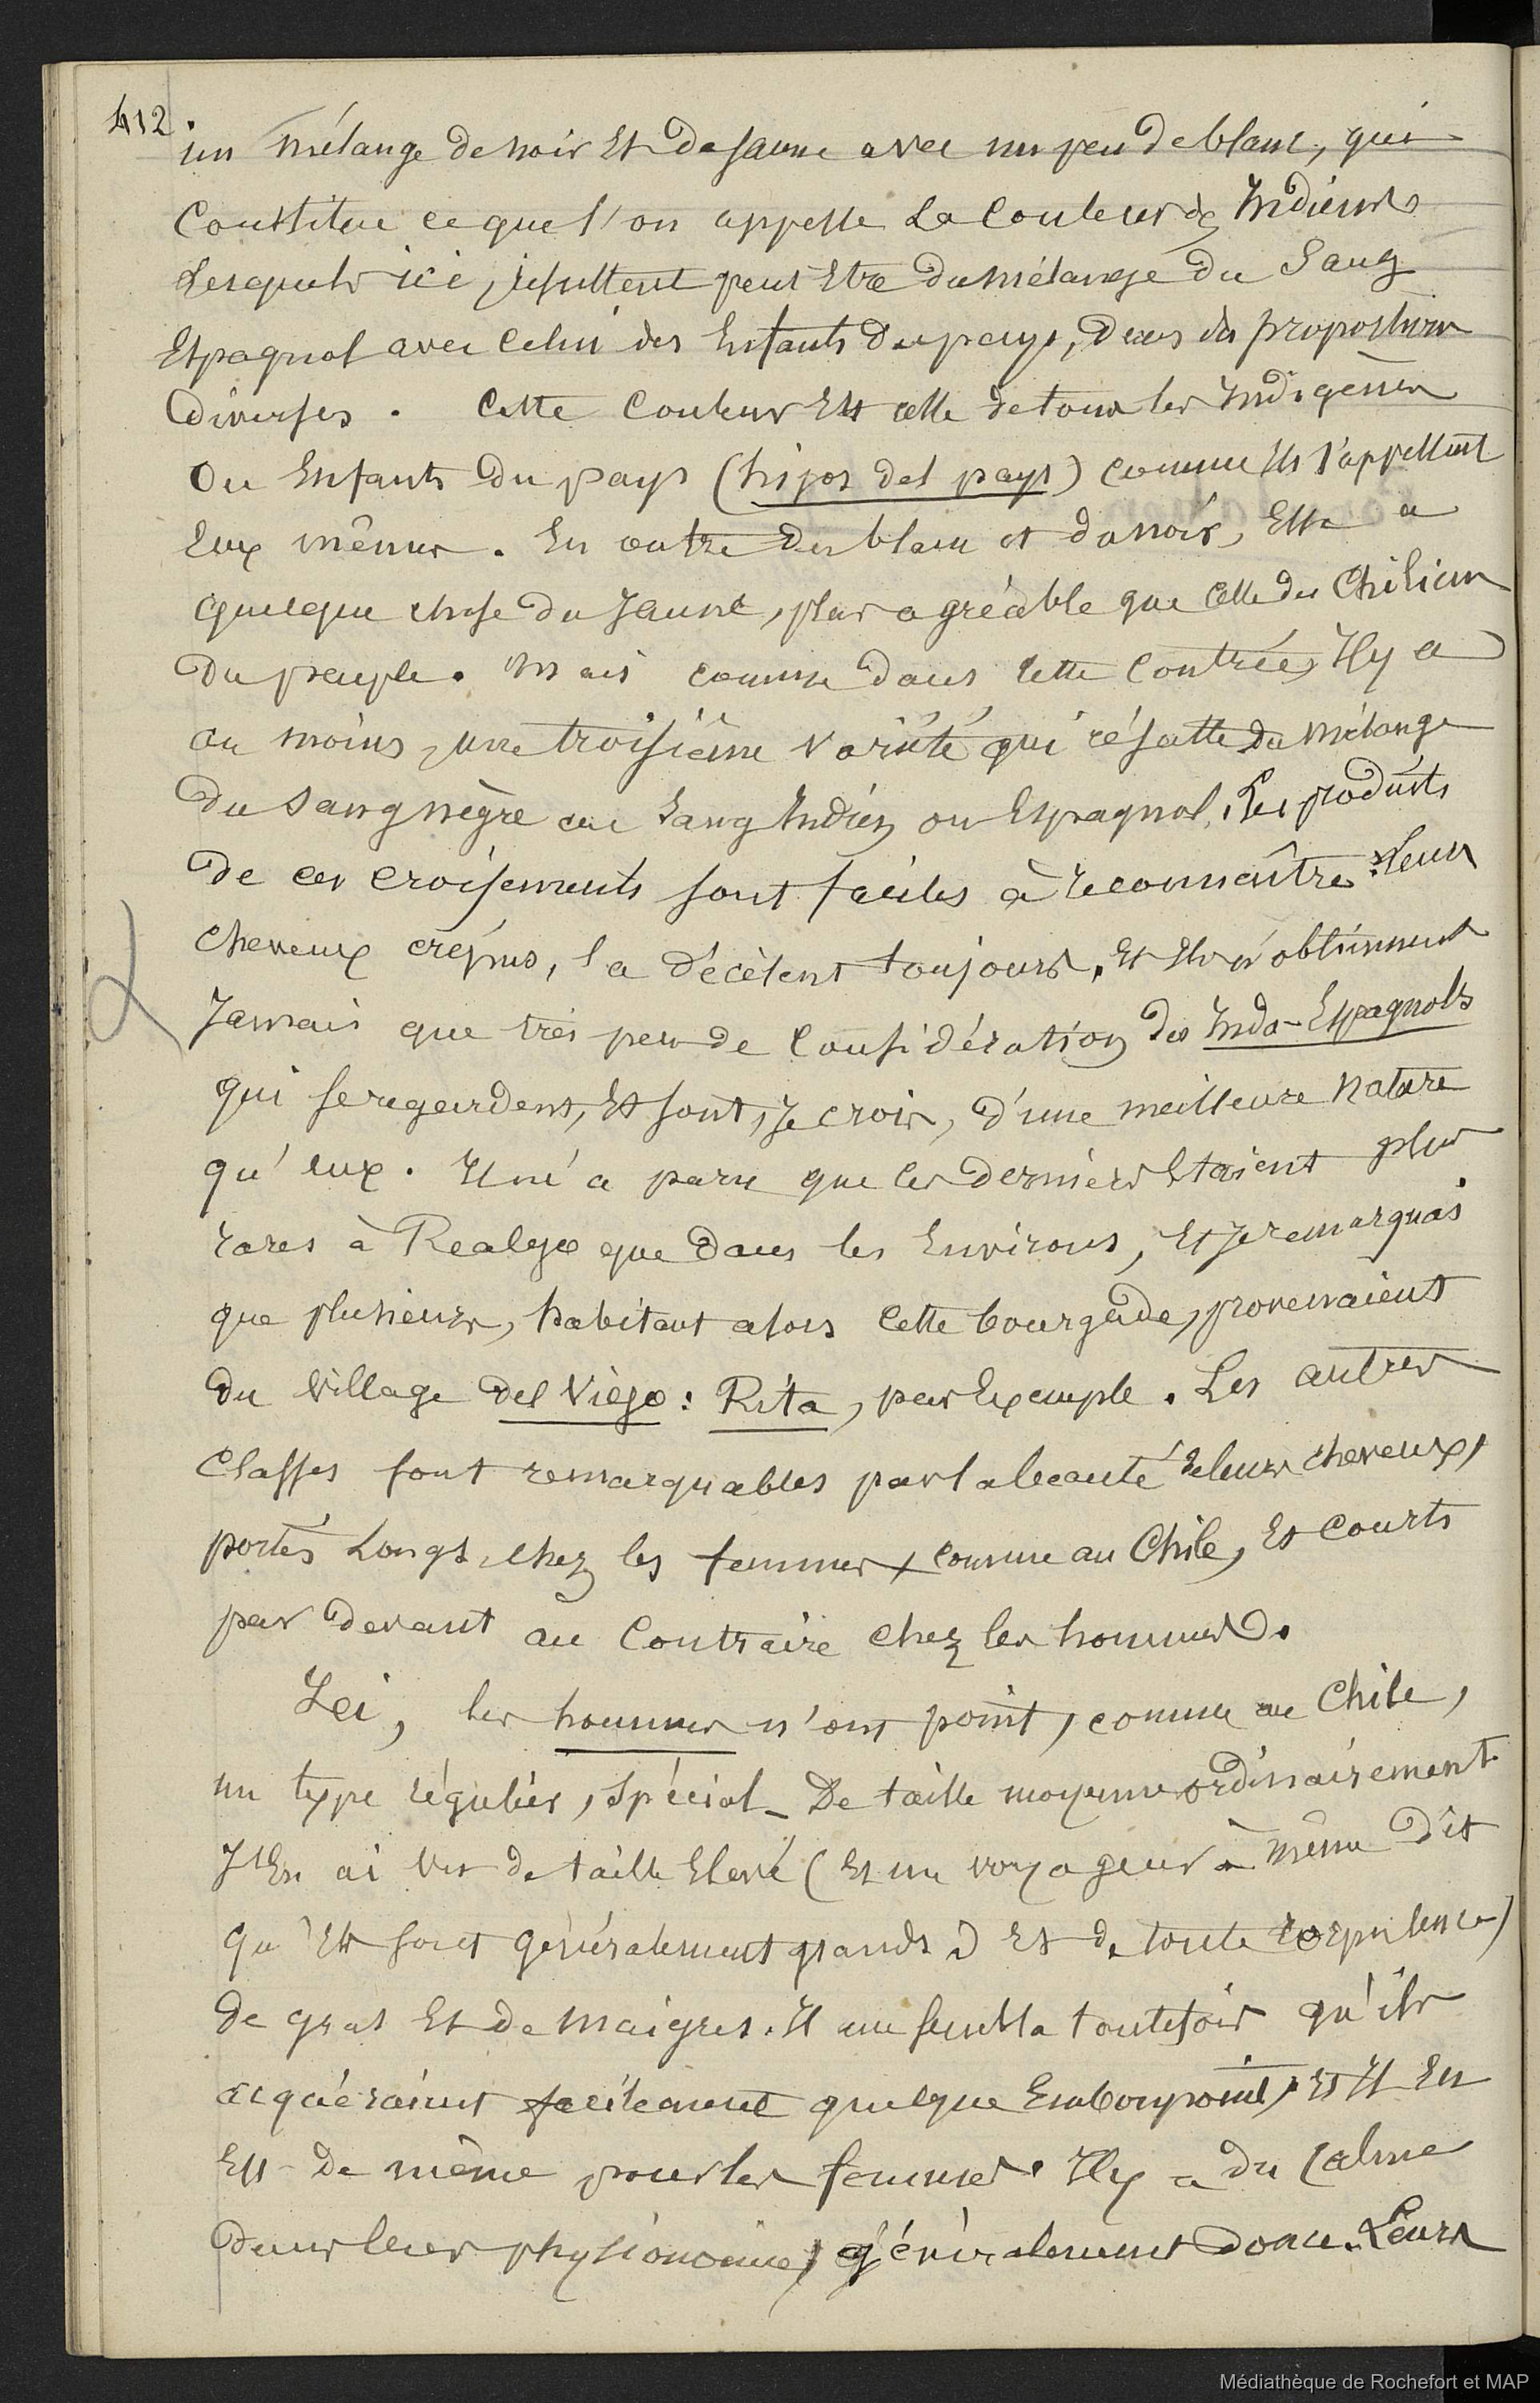 412.
un mélange de noir Et de jaune avec un peu de blanc, qui
Constitue ce que l'on appelle La Couleur des Indiens
Lesquels ici, résultent peut Etre du mélange du Sang
Espagnol avec Celui des Enfants du pays, dans des proportions
diverses. Cette Couleur Est celle de tous les Indigènes
Ou Enfants du pays (hijos del pays) comme Ils s'appellent
Eux mêmes. En outre du blanc et du noir, Elle a
quelque chose du Jaune, plus agréable que Celle des Chiliens
du peuple. Mais comme dans cette Contrée, Il y a
au moins, une troisième variété qui résulte du mélange
du Sang nègre au Sang Indien ou Espagnol, Les produits
de ces croisements sont faciles à reconnaître. Leurs
cheveux crépus, la décèlent toujours, Et Ils n'obtiennent
Jamais que très peu de Considération des Indo-Espagnols
qui se regardent, Et sont, Je crois, d'une meilleure nature
qu'eux. Il m'a paru que les derniers Etaient plus
rares à Realejo que dans les Environs, Et Je remarquais
que plusieurs, habitant alors cette bourgade, provenaient
du Village del Viego : Rita, par Exemple. Les autres
Classes sont remarquables par la beauté de leurs cheveux,
portés Longs chez les femmes, comme au Chile, Et Courts
par devant au Contraire chez les hommes.
Ici, les hommes n'ont point, comme au Chile,
un type régulier, Spécial - De taille moyenne ordinairement
J'En ai Vus de taille Elevé (Et un voyageur a même dit
qu'Ils sont généralement grands) Et de toute corpulence,
de gras Et de Maigres. Il me sembla toutefois qu'ils
acquéraient facilement quelque Embonpoint, Et Il En
Est de même pour les femmes. Il y a du Calme
dans leur physionomie, généralement douce. Leurs
Médiathèque de Rochefort et MAP